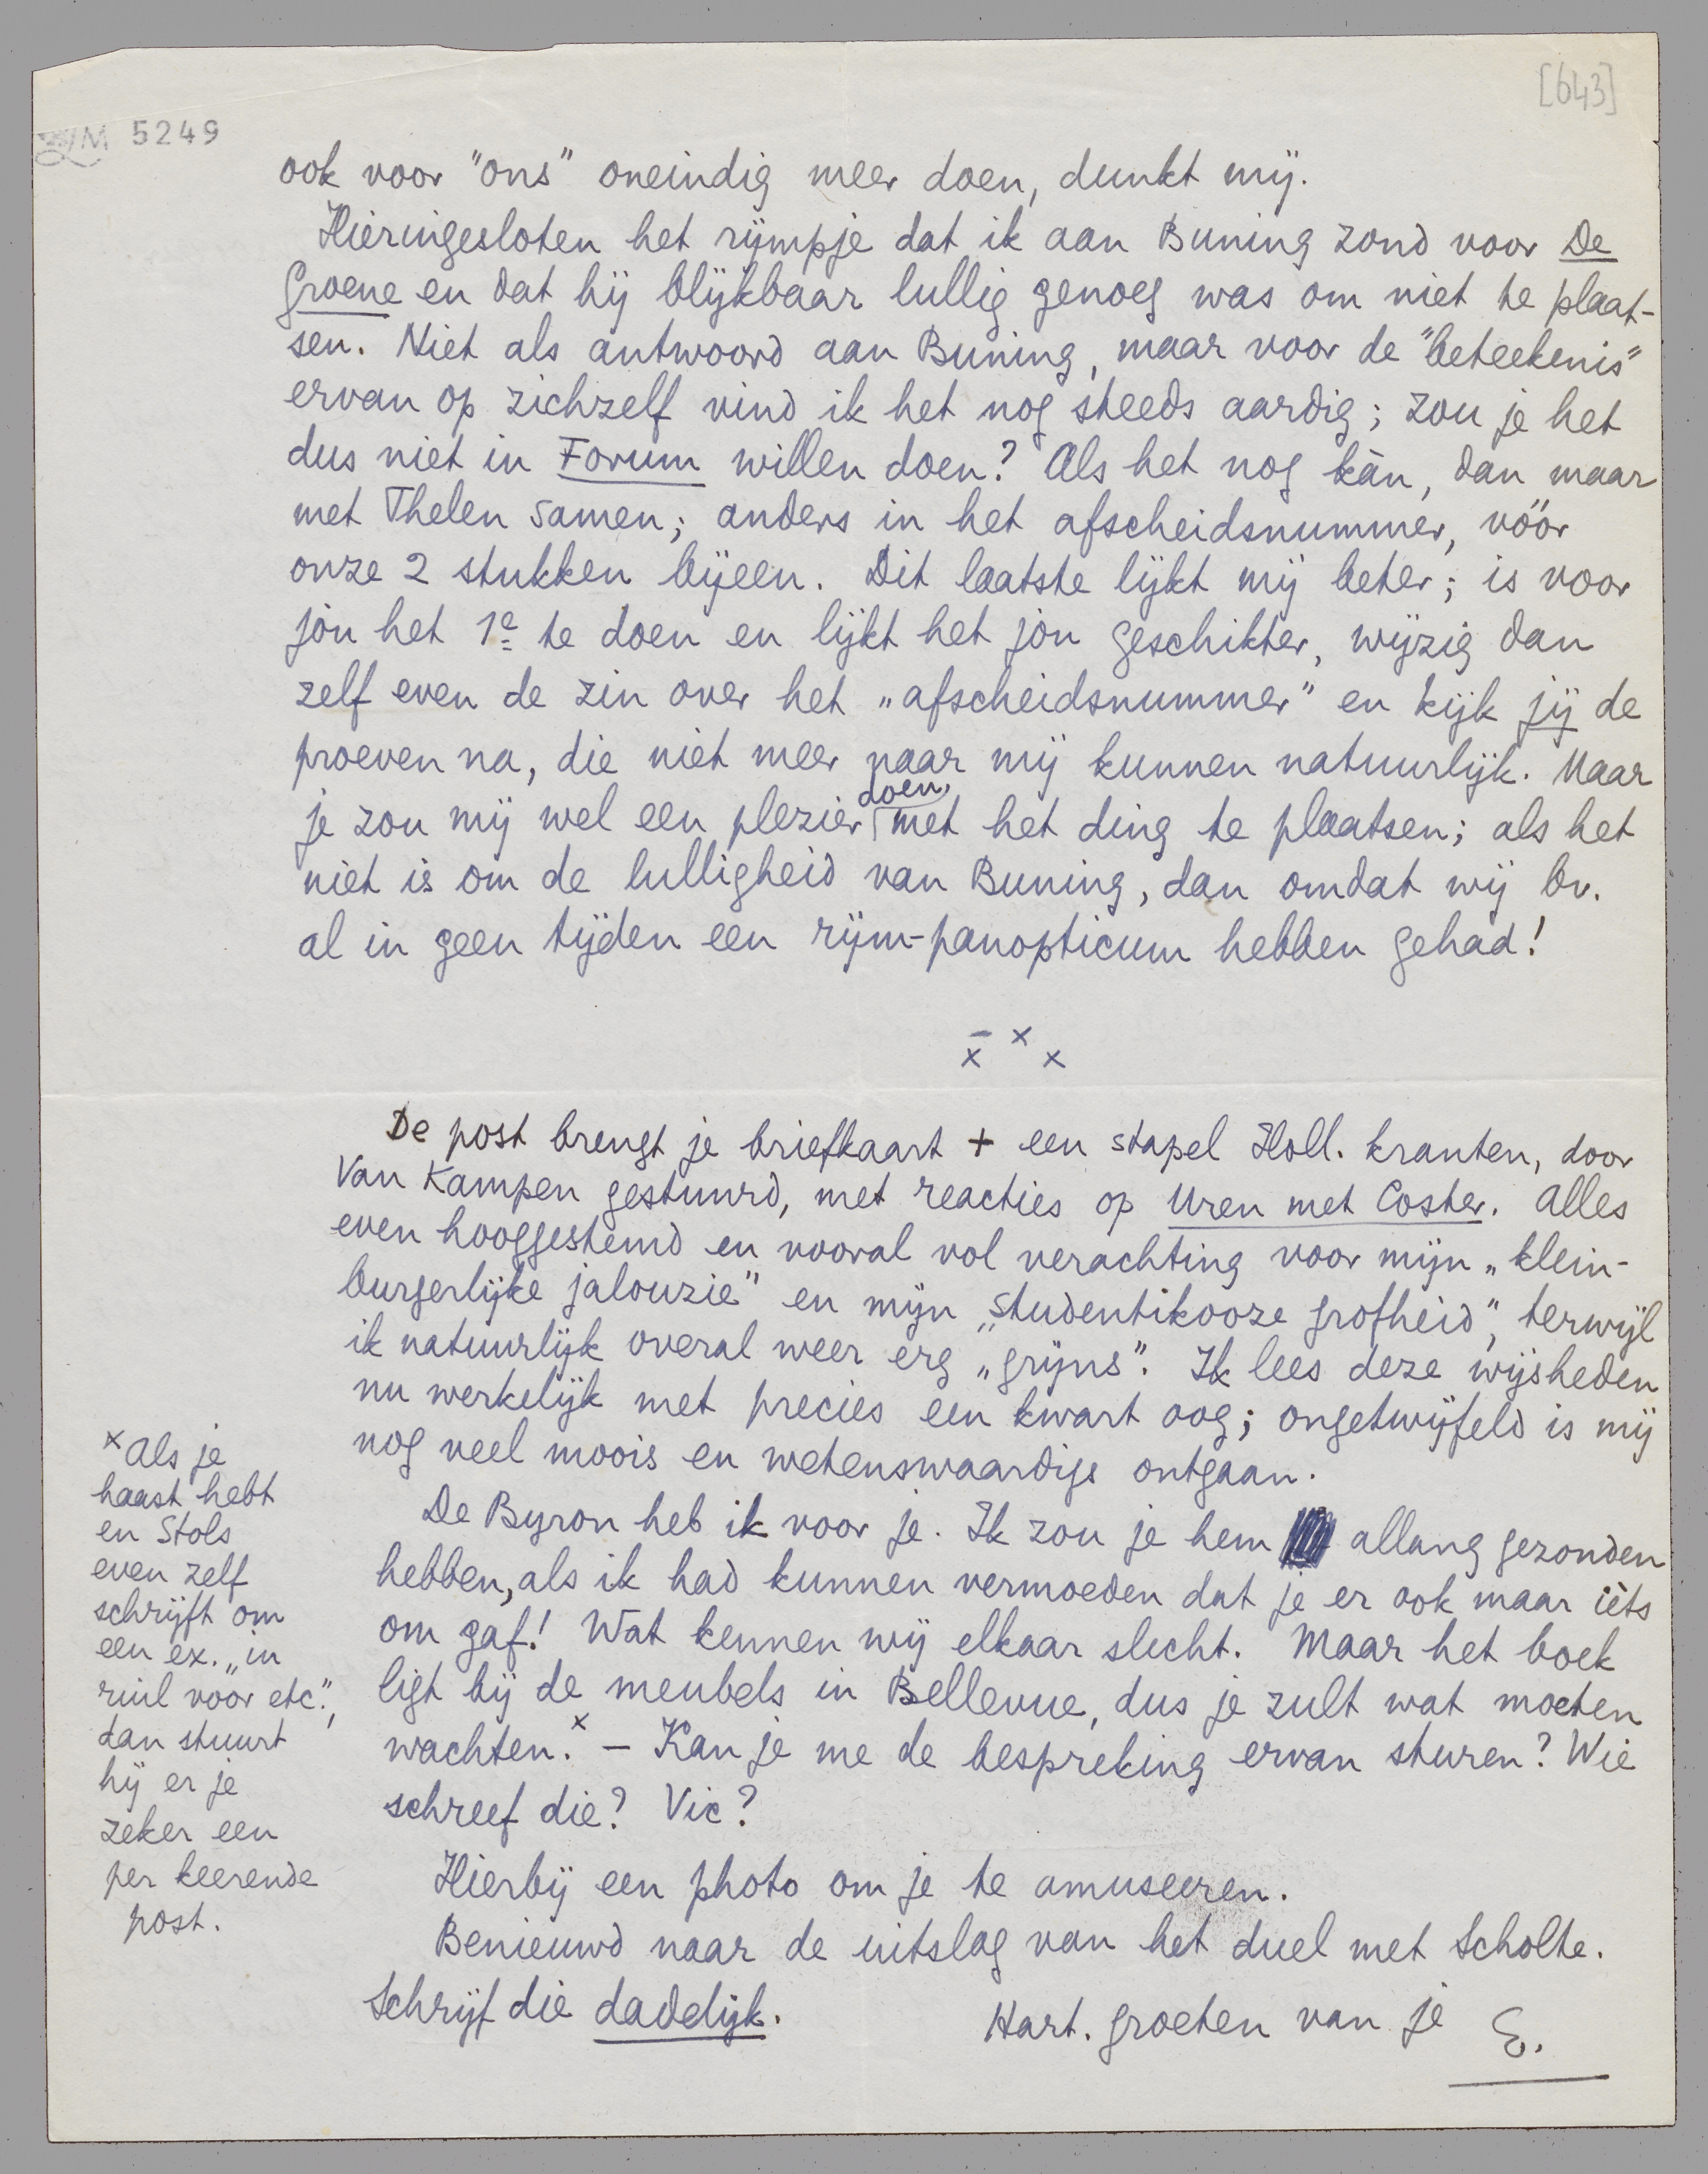 [643]
LM 5249
ook voor "ons" oneindig meer doen, dunkt mij.
Hieringesloten het rijmpje dat ik aan Buning zond voor De
Groene en dat hij blijkbaar lullig genoeg was om niet te plaat-
sen. Niet als antwoord aan Buning, maar voor de "beteekenis"
ervan op zichzelf vind ik het nog steeds aardig; zou je het
dus niet in Forum willen doen? Als het nog kàn, dan maar
met Thelen samen; anders in het afscheidsnummer, vóór
onze 2 stukken bijeen. Dit laatste lijkt mij beter; is voor
jòu het 1e te doen en lijkt het jòu geschikter, wijzig dan
zelf even de zin over het „afscheidsnummer" en kijk jij de
proeven na, die niet meer naar mij kunnen natuurlijk. Maar
je zou mij wel een plezier doen, met het ding te plaatsen; als het
niet is om de lulligheid van Buning, dan omdat wij bv.
al in geen tijden een rijm-panopticum hebben gehad!
x x x
De post brengt je briefkaart + een stapel Holl. kranten, door
Van Kampen gestuurd, met reacties op Uren met Coster. Alles
even hooggestemd en vooral vol verachting voor mijn „klein-
burgerlijke jalouzie" en mijn „studentikooze grofheid", terwijl
ik natuurlijk overal weer erg „grijns". Ik lees deze wijsheden
nu werkelijk met precies een kwart oog; ongetwijfeld is mij
nog veel moois en wetenswaardigs ontgaan.
De Byron heb ik voor je. Ik zou je hem allang gezonden
hebben, als ik had kunnen vermoeden dat je er ook maar ièts
om gaf! Wat kennen wij elkaar slecht. Maar het boek
ligt bij de meubels in Bellevue, dus je zult wat moeten
wachten.x – Kan je me de bespreking ervan sturen? Wie
schreef die? Vic?
Hierbij een photo om je te amuseeren.
Benieuwd naar de uitslag van het duel met Scholte.
Schrijf die dadelijk.
Hart. groeten van je E.
x Als je
haast hebt
en Stols
even zelf
schrijft om
een ex. „in
ruil voor etc.",
dan stuurt
hij er je
zeker een
per keerende
post.